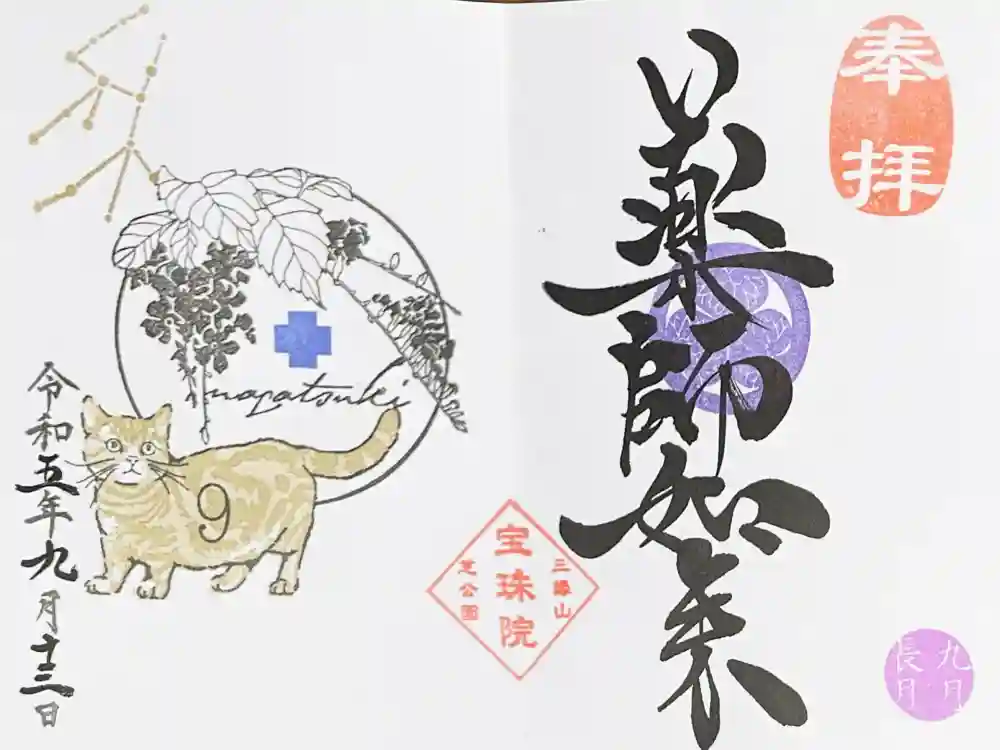 奉拝
薬師如来
九月
長月
三緑山
宝珠院
芝公園
nagatsuki
9
令和五年九月十三日